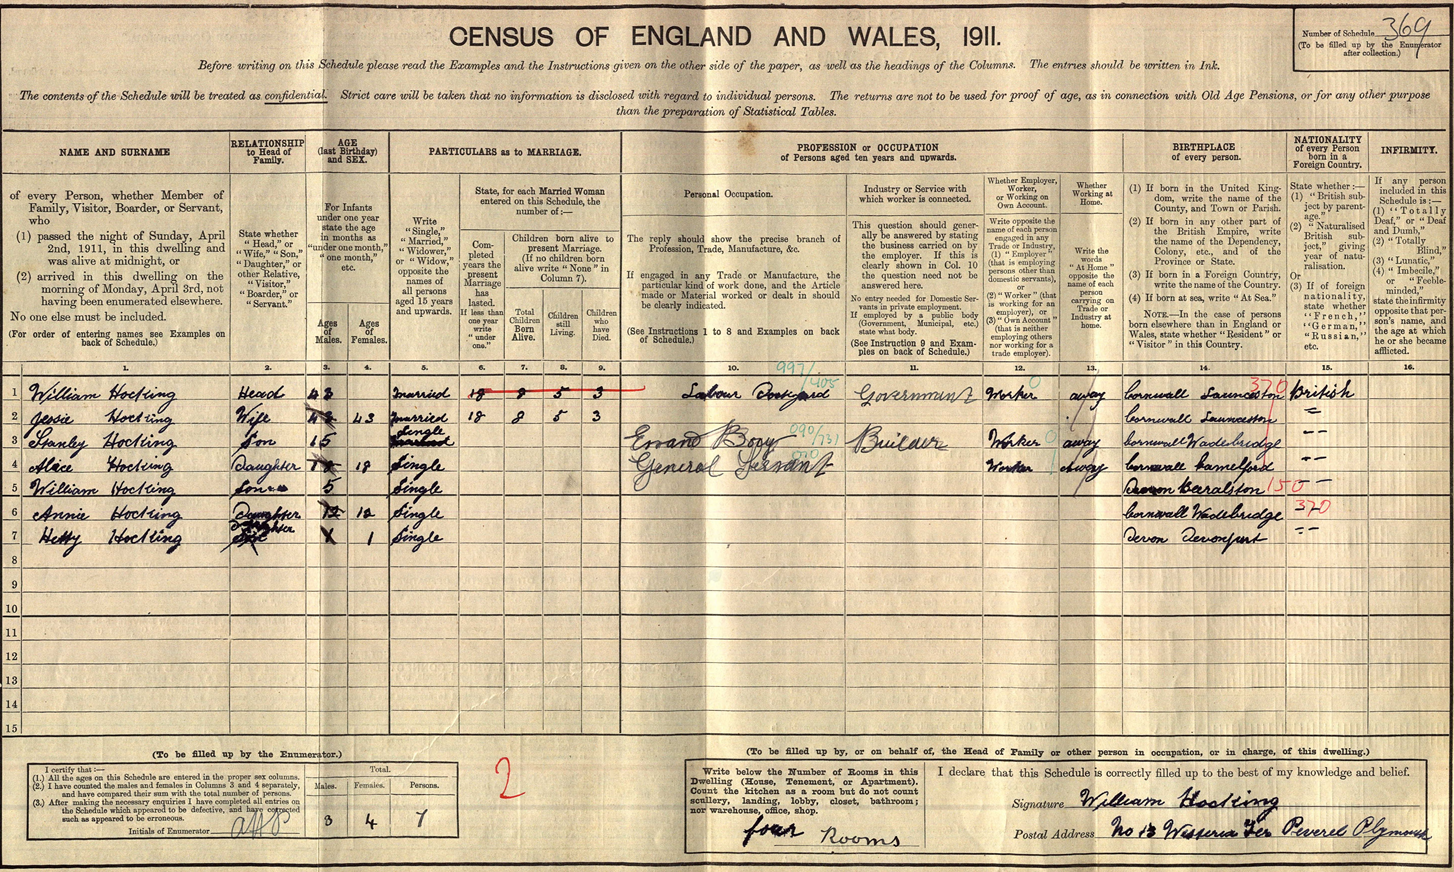 CENSUS OF ENGLAND AND WALES, 1911.
Number of Schedule 369
(To be filled up by the Enumerator after collection.)
Before writing on this Schedule please read the Examples and the Instructions given on the other side of the paper, as well as the headings of the Columns. The entries should be written in Ink.
The contents of the Schedule will be treated as confidential. Strict care will be taken that no information is disclosed with regard to individual persons. The returns are not to be used for proof of age, as in connection with Old Age Pensions, or for any other purpose
than the preparation of Statistical Tables.
NAME AND SURNAME
of every Person, whether Member of
Family, Visitor, Boarder, or Servant,
who
(1) passed the night of Sunday, April
2nd, 1911, in this dwelling and
was alive at midnight, or
(2) arrived in this dwelling on the
morning of Monday, April 3rd, not
having been enumerated elsewhere.
No one else must be included.
(For order of entering names see Examples on
back of Schedule.)
RELATIONSHIP
to Head of
Family.
State whether
"Head," or
"Wife," "Son,"
"Daughter," or
other Relative,
"Visitor,"
"Boarder," or
"Servant."
AGE
(last Birthday)
and SEX.
For Infants
under one year
state the age
in months as
"under one month,"
"one month,"
etc.
Ages
of
Males.
Ages
of
Females.
PARTICULARS as to MARRIAGE.
Write
"Single,"
"Married,"
"Widower,"
or "Widow,"
opposite the
names of
all persons
aged 15 years
and upwards.
State, for each Married Woman
entered on this Schedule, the
number of:—
Completed
years the
present
Marriage
has
lasted.
If less than
one year
write
"under
one."
Children born alive to
present Marriage.
(If no children born
alive write "None" in
Column 7).
Total
Children
Born
Alive.
Children
still
Living.
Children
who
have
Died.
PROFESSION or OCCUPATION
of Persons aged ten years and upwards.
Personal Occupation.
The reply should show the precise branch of
Profession, Trade, Manufacture, &c.
If engaged in any Trade or Manufacture, the
particular kind of work done, and the Article
made or Material worked or dealt in should
be clearly indicated.
(See Instructions 1 to 8 and Examples on back
of Schedule.)
Industry or Service with
which worker is connected.
This question should gener-
ally be answered by stating
the business carried on by
the employer. If this is
clearly shown in Col. 10
the question need not be
answered here.
No entry needed for Domestic Ser-
vants in private employment.
If employed by a public body
(Government, Municipal, etc.)
state what body.
(See Instruction 9 and Exam-
ples on back of Schedule.)
Whether Employer,
Worker,
or Working on
Own Account.
Write opposite the
name of each
person engaged in
any Trade or
Industry,
(1) "Employer"
(that is employing
persons other than
domestic servants),
or
(2) "Worker" (that
is working for an
employer), or
(3) "Own Account"
(that is neither
employing others
nor working for a
trade employer).
Whether
Working at
Home.
Write the
words
"At Home"
opposite the
name of each
person
carrying on
Trade or
Industry at
home.
BIRTHPLACE
of every person.
(1) If born in the United King-
dom, write the name of the
County, and Town or Parish.
(2) If born in any other part of
the British Empire, write
the name of the Dependency,
Colony, etc., and of the
Province or State.
(3) If born in a Foreign Country,
write the name of the Country.
(4) If born at sea, write "At Sea."
NOTE.—In the case of persons
born elsewhere than in England or
Wales, state whether "Resident" or
"Visitor" in this Country.
NATIONALITY
of every Person
born in a
Foreign Country.
State whether:—
(1) "British sub-
ject by parent-
age."
(2) "Naturalised
British sub-
ject," giving
year of natu-
ralisation.
Or
(3) If of foreign
nationality,
state whether
"French,"
"German,"
"Russian,"
etc.
INFIRMITY.
If any person
included in this
Schedule is:—
(1) "Totally
Deaf," or "Deaf
and Dumb,"
(2) "Totally
Blind,"
(3) "Lunatic,"
(4) "Imbecile,"
or "Feeble-
minded,"
state the infirmity
opposite that per-
son's name, and
the age at which
he or she became
afflicted.
1. 2. 3. 4. 5. 6. 7. 8. 9. 10. 11. 12. 13. 14. 15. 16.
1 William Hocking Head 43 Married 18 8 5 3 Labour Dockyard 997/405 Government Worker 0 away Cornwall Launceston 370 British
2 Jessie Hocking Wife 43 Married 18 8 5 3 Cornwall Launceston "
3 Stanley Hocking Son 15 Single Errand Bogy 090/731 Builder Worker 0 away Cornwall Wadebridge "
4 Alice Hocking Daughter 18 Single General Servant Worker away Cornwall Camelford "
5 William Hocking Son 5 Single Devon Bearalston 150 "
6 Annie Hocking Daughter 12 12 Single Cornwall Wadebridge 370
7 Hetty Hocking Daughter 1 1 Single Devon Devonport "
8
9
10
11
12
13
14
15
(To be filled up by the Enumerator.)
I certify that:—
(1.) All the ages on this Schedule are entered in the proper sex columns.
(2.) I have counted the males and females in Columns 3 and 4 separately,
and have compared their sum with the total number of persons.
(3.) After making the necessary enquiries I have completed all entries on
the Schedule which appeared to be defective, and have corrected
such as appeared to be erroneous.
Initials of Enumerator
Total.
Males. Females. Persons.
3 4 7
2
(To be filled up by, or on behalf of, the Head of Family or other person in occupation, or in charge, of this dwelling.)
Write below the Number of Rooms in this
Dwelling (House, Tenement, or Apartment).
Count the kitchen as a room but do not count
scullery, landing, lobby, closet, bathroom;
nor warehouse, office, shop.
four Rooms
I declare that this Schedule is correctly filled up to the best of my knowledge and belief.
Signature William Hocking
Postal Address No 13 Westeria Ter Peverel Plymouth